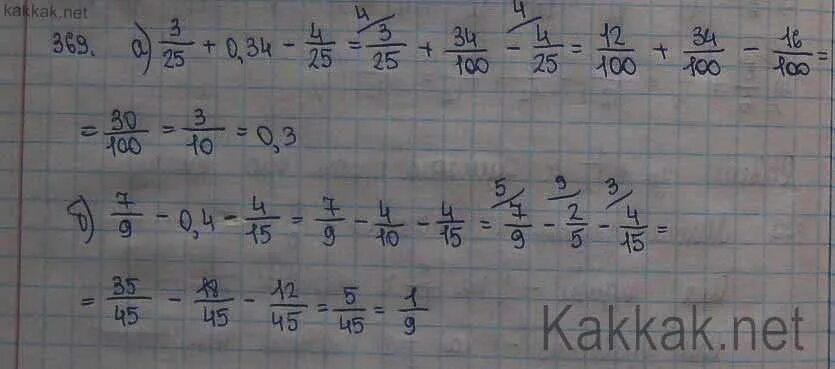 kakkak.net
369. а) 3/25 + 0,34 - 4/25 = 4/ 3/25 + 34/100 - 4/ 4/25 = 12/100 + 34/100 - 16/100 =
= 30/100 = 3/10 = 0,3
б) 7/9 - 0,4 - 4/15 = 7/9 - 4/10 - 4/15 = 5/ 7/9 - 9/ 2/5 - 3/ 4/15 =
= 35/45 - 18/45 - 12/45 = 5/45 = 1/9
Kakkak.net